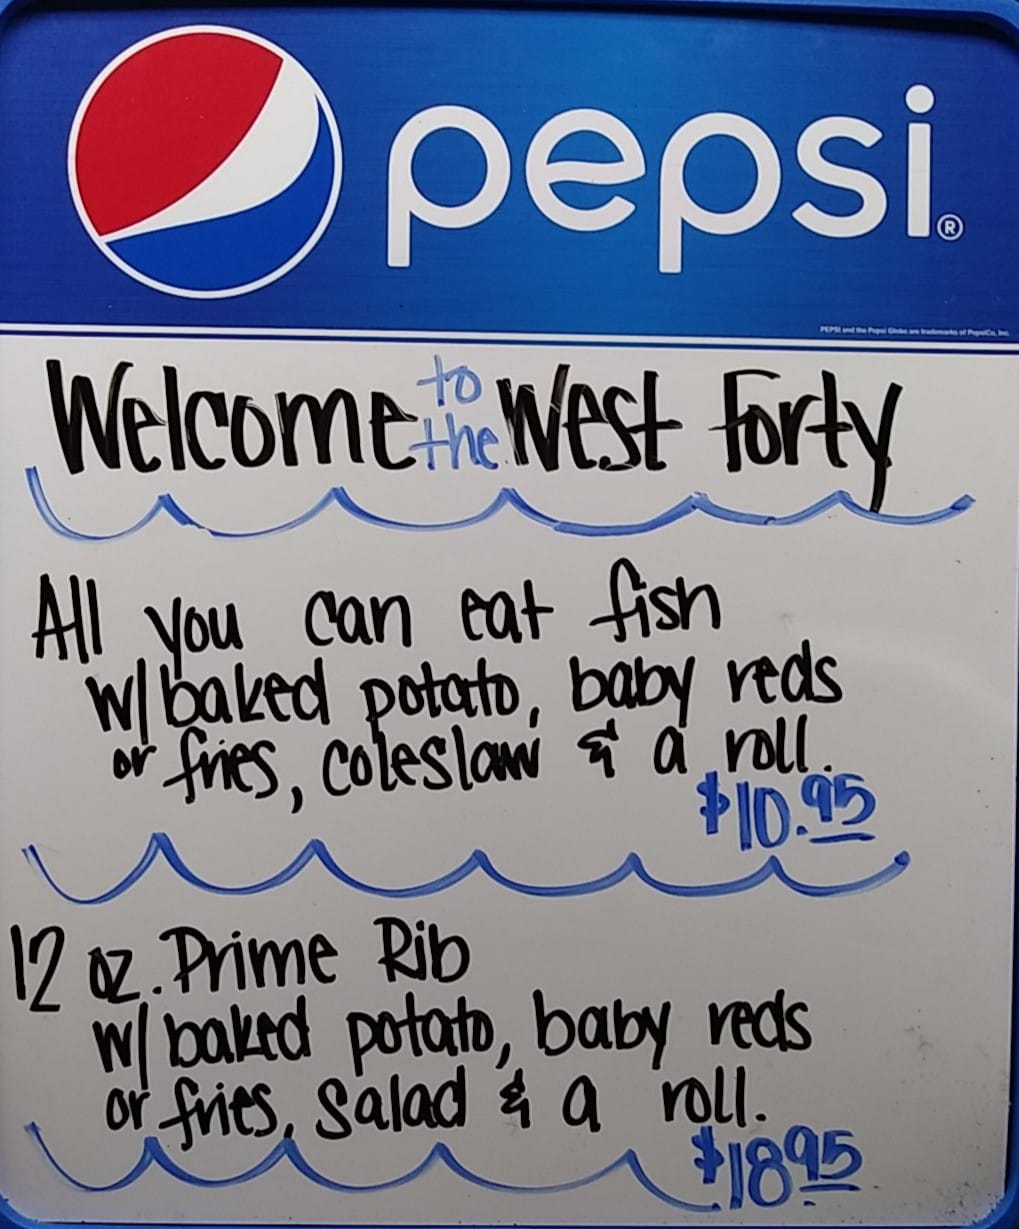 pepsi®
PEPSI and the Pepsi Globe are trademarks of PepsiCo, Inc.
Welcome to the West Forty
All you can eat fish
w/ baked potato, baby reds
or fries, coleslaw & a roll.
$10.95
12 oz. Prime Rib
w/ baked potato, baby reds
or fries, salad & a roll.
$1895